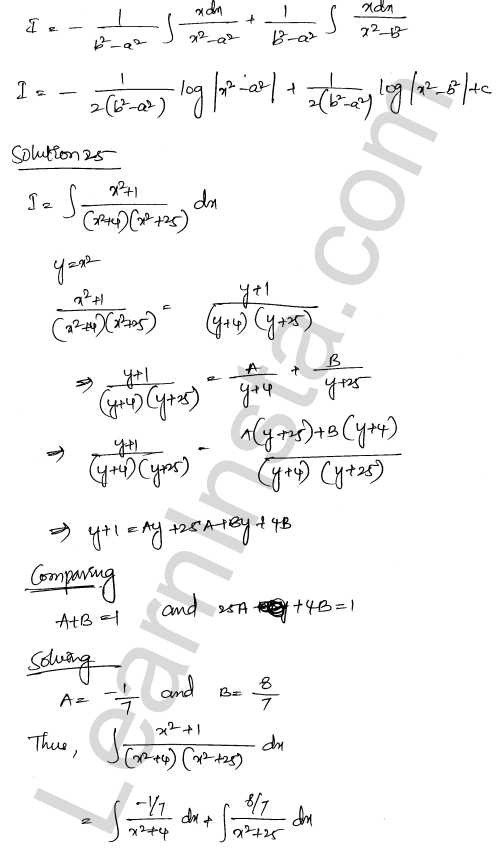 I = - 1/(b²-a²) ∫ xdx/(x²-a²) + 1/(b²-a²) ∫ xdx/(x²-b²)
I = - 1/2(b²-a²) log|x²-a²| + 1/2(b²-a²) log|x²-b²|+c
Solution 25
I = ∫ (x²+1)/((x²+4)(x²+25)) dx
y=x²
(x²+1)/((x²+4)(x²+25)) = (y+1)/((y+4)(y+25))
⇒ (y+1)/((y+4)(y+25)) = A/(y+4) + B/(y+25)
⇒ (y+1)/((y+4)(y+25)) = (A(y+25)+B(y+4))/((y+4)(y+25))
⇒ y+1 = Ay+25A+By+4B
Comparing
A+B=1 and 25A +4B=1
Solving
A= -1/7 and B= 8/7
Thus, ∫ (x²+1)/((x²+4)(x²+25)) dx
= ∫ (-1/7)/(x²+4) dx + ∫ (8/7)/(x²+25) dx
LearnInsta.com